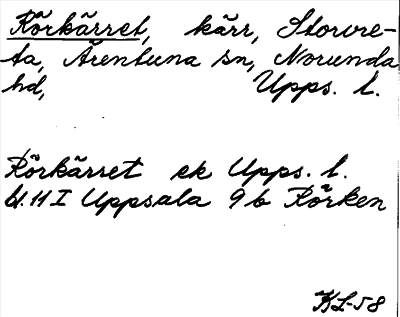 Rörkärret, kärr, Storvre-
ta, Ärentuna sn, Norunda
hd, Upps. l.
Rörkärret ek Upps. l.
bl. 11 I Uppsala 9 b Rörken
KL-58